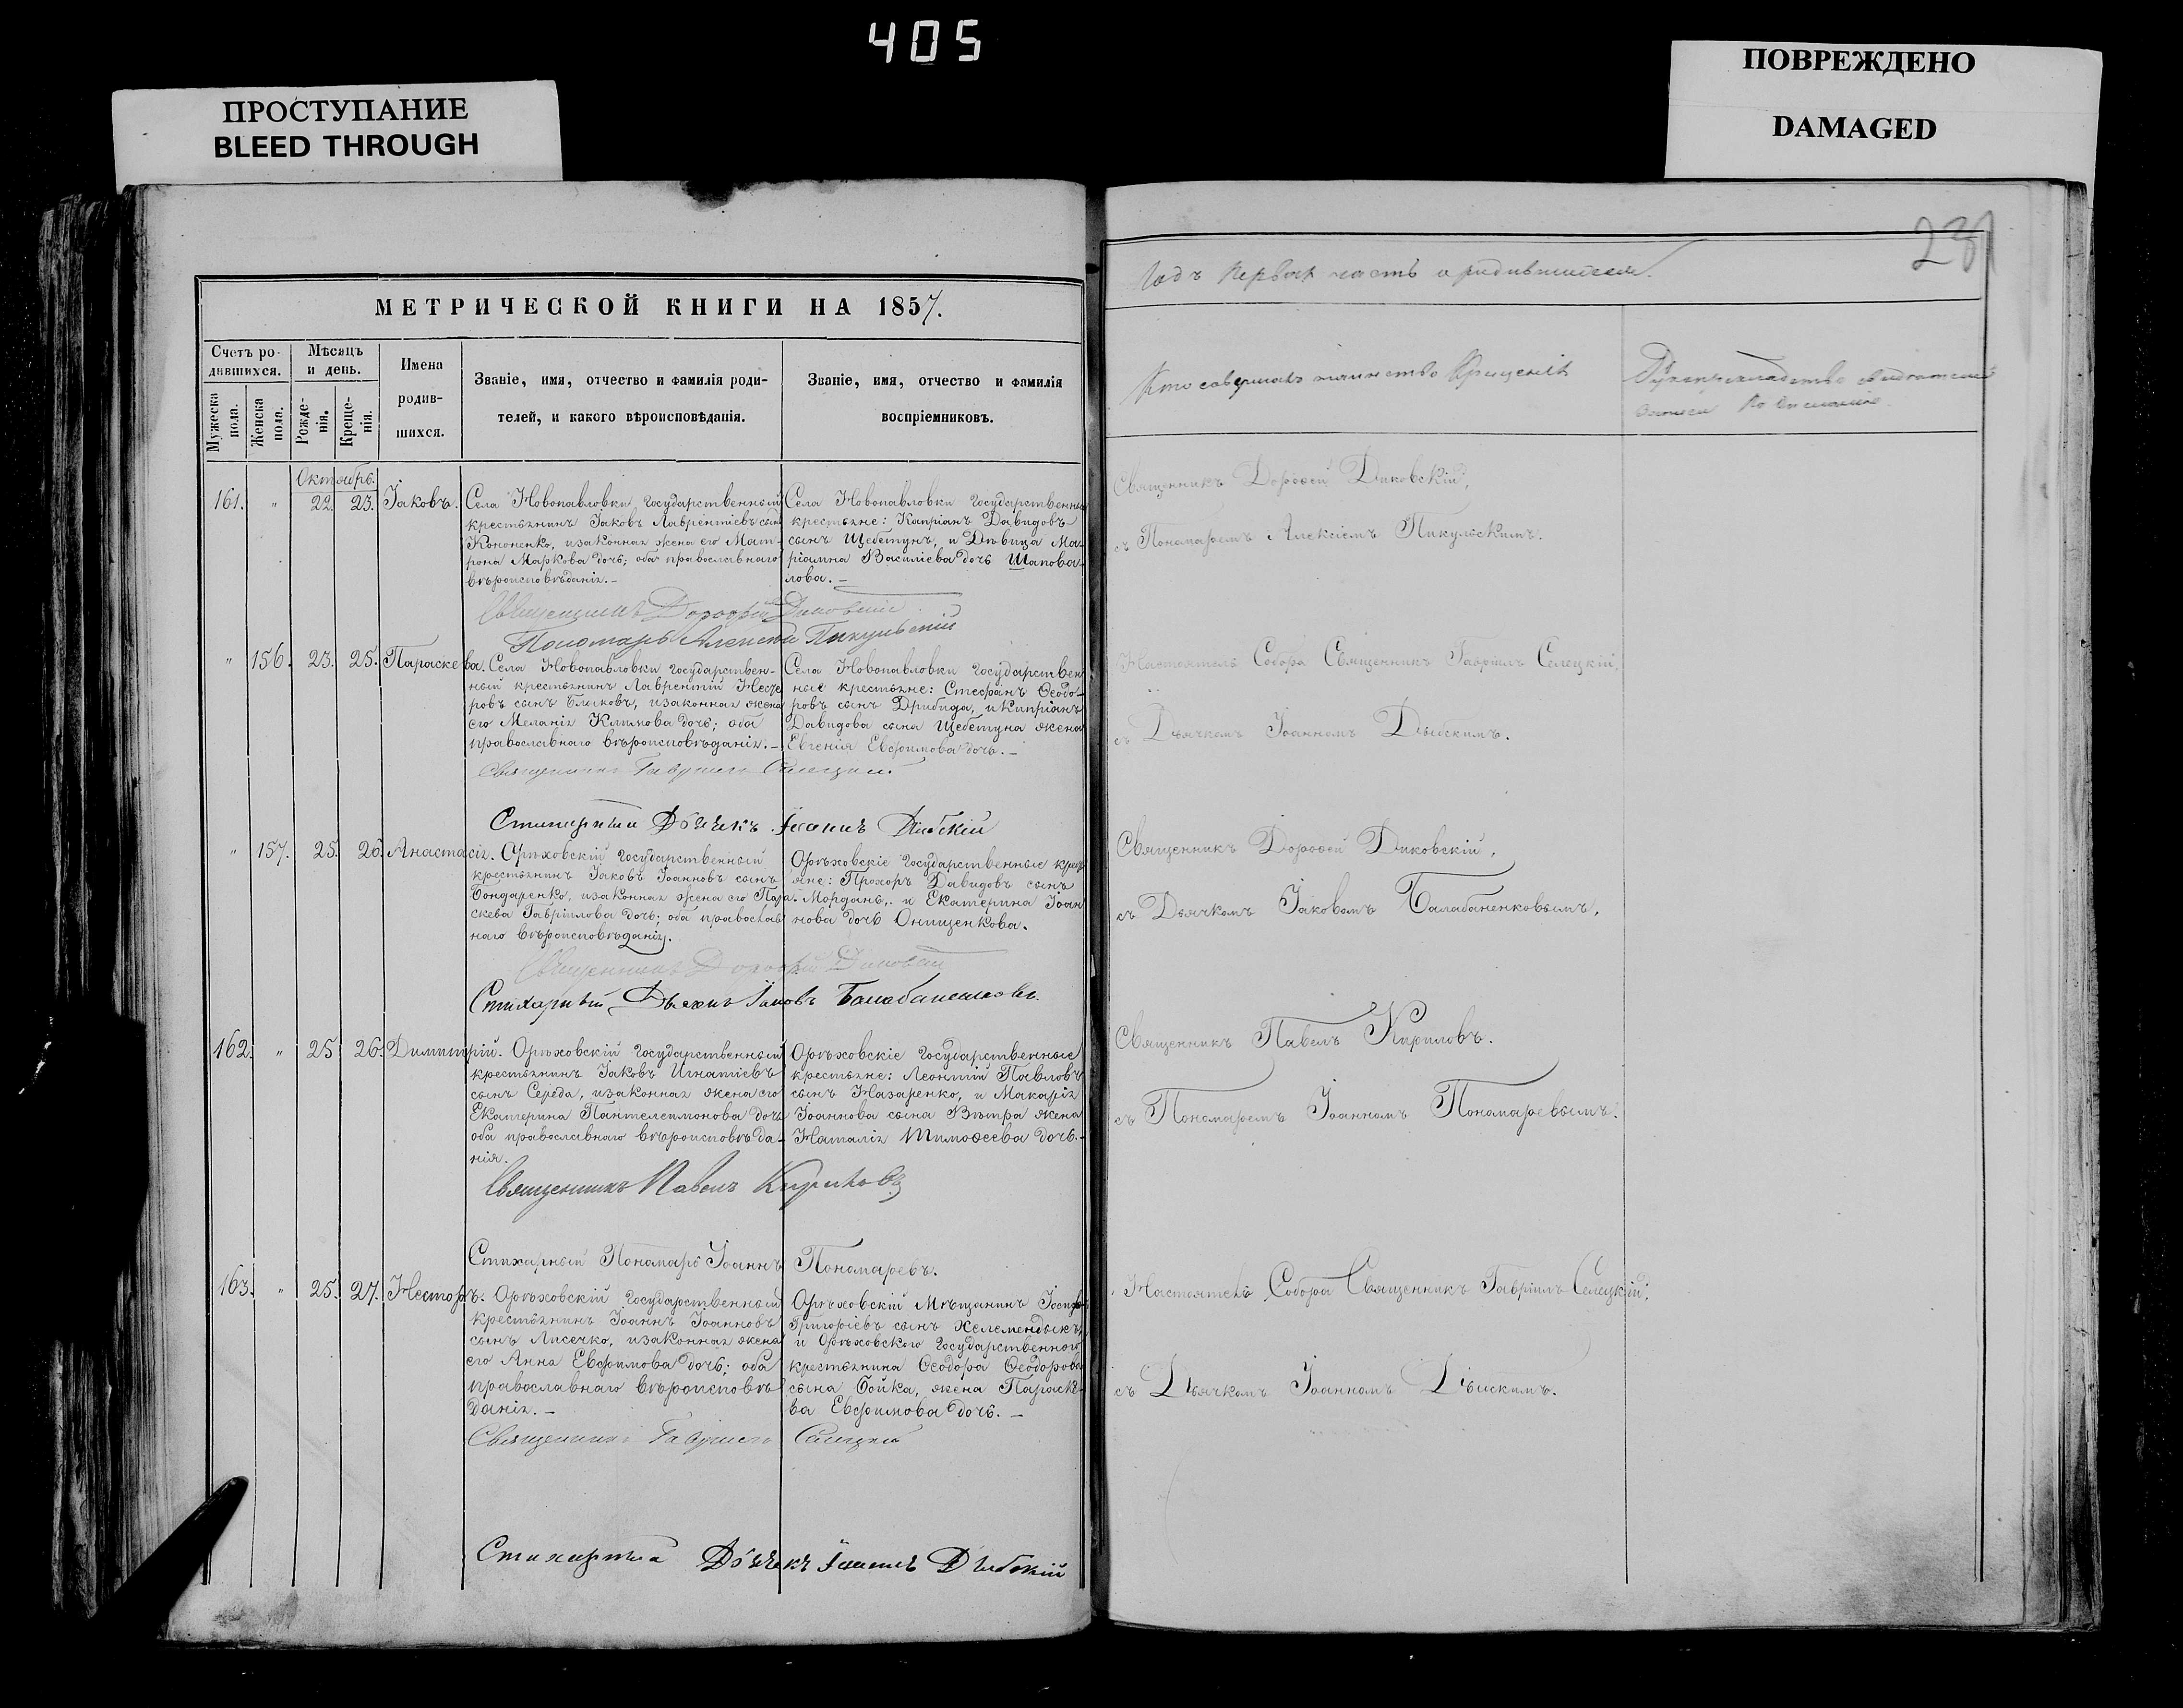 405
ПРОСТУПАНИЕ
BLEED THROUGH
ПОВРЕЖДЕНО
DAMAGED
231
МЕТРИЧЕСКОЙ КНИГИ НА 1857.
Счетъ ро-
дившихся.
Мужеска
пола.
Женска
пола.
Мѣсяцъ
и день.
Рожде-
нія.
Креще-
нія.
Имена
родив-
шихся.
Званіе, имя, отчество и фамилія роди-
телей, и какого вѣроисповѣданія.
Званіе, имя, отчество и фамилія
воспріемниковъ.
Октябрь.
161. " 22. 23. Іаковъ.
Села Новопавловки государственный
крестьянинъ Іаковъ Лаврентіевъ сынъ
Кононенко, и законная жена его Мат-
рона Маркова дочь; оба православнаго
вѣроисповѣданія.-
Села Новопавловки Государственные
крестьяне: Кипріанъ Давидовъ
сынъ Щебетунъ, и Дѣвица Ма-
ріамна Василіева дочь Шапова-
лова.-
Священникъ Дорофей Диковскій
Пономарь Алексѣй Пикульскій
" 156. 23. 25. Параскева.
Села Новопавловки государствен-
ный крестьянинъ Лаврентій Несте
ровъ сынъ Быковъ, и законная жена
его Меланія Климова дочь; оба
православнаго вѣроисповѣданія.-
Села Новопавловки Государствен
ные крестьяне: Стефанъ Ѳеодо-
ровъ сынъ Дрибида, и Кипріана
Давидова сына Щебетуна жена
Евгенія Евфимова дочь.-
Священникъ Гавріилъ Селецкій
Стихарный Дьячекъ Іоаннъ
" 157. 25. 26. Анастасія.
Орѣховскій государственный
крестьянинъ Іаковъ Іоанновъ сынъ
Бондаренко, и законная жена его Пара-
скева Гавріилова дочь; оба православ
наго вѣроисповѣданія.
Орѣховскіе Государственные кресть
яне: Прохоръ Давидовъ сынъ
Морданъ, и Екатерина Іоан
нова дочь Онищенкова.
Священникъ Дорофей Диковскій
Стихарный Дьячекъ Іаковъ Балабаненковъ.
162. " 25 26. Димитрій.
Орѣховскій государственный
крестьянинъ Іаковъ Игнатіевъ
сынъ Середа, и законная жена его
Екатерина Пантелеимонова дочь
оба православнаго вѣроисповѣда-
нія.
Орѣховскіе Государственные
крестьяне: Леонтій Павловъ
сынъ Назаренко, и Макарія
Іоаннова сына Вѣтра жена
Наталія Тимоѳеева дочь.-
Священникъ Павелъ Кириловъ
Стихарный Пономарь Іоаннъ Пономаревъ.
163. " 25. 27. Несторъ.
Орѣховскій государственный
крестьянинъ Іоаннъ Іоанновъ
сынъ Лисечко, и законная жена
его Анна Евфимова дочь; оба
православнаго вѣроисповѣ
данія.-
Орѣховскій Мѣщанинъ Іосифъ
Григоріевъ сынъ Желемендыкъ,
и Орѣховского Государственного
крестьянина Ѳеодора Ѳеодорова
сына Бойка, жена Параске-
ва Евфимова дочь.-
Священникъ Гавріилъ Селецкій
Стихарный Дьячекъ Іоаннъ
Годъ первая часть о родившихся.
Кто совершалъ таинство Крещенія
Рукоприкладство свидѣтелей
записи по желанію.
Священникъ Дороѳей Диковскій,
съ Пономаремъ Алексіемъ Пикульскимъ.
Настоятель Собора Священникъ Гавріилъ Селецкій,
съ Дьячкомъ Іоанномъ
Священникъ Дороѳей Диковскій,
съ Дьячкомъ Іаковомъ Балабаненковымъ.
Священникъ Павелъ Кириловъ.
съ Пономаремъ Іоанномъ Пономаревымъ.
Настоятель Собора Священникъ Гавріилъ Селецкій;
съ Дьячкомъ Іоанномъ